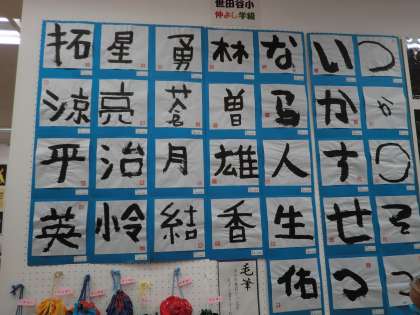 世田谷小
仲よし学級
拓 星 勇 林 な い つ
涼 亮 蒼 曽 る か か
平 治 月 雄 人 す つ
英 怜 結 香 生 せ そ
佑 つ つ
毛筆